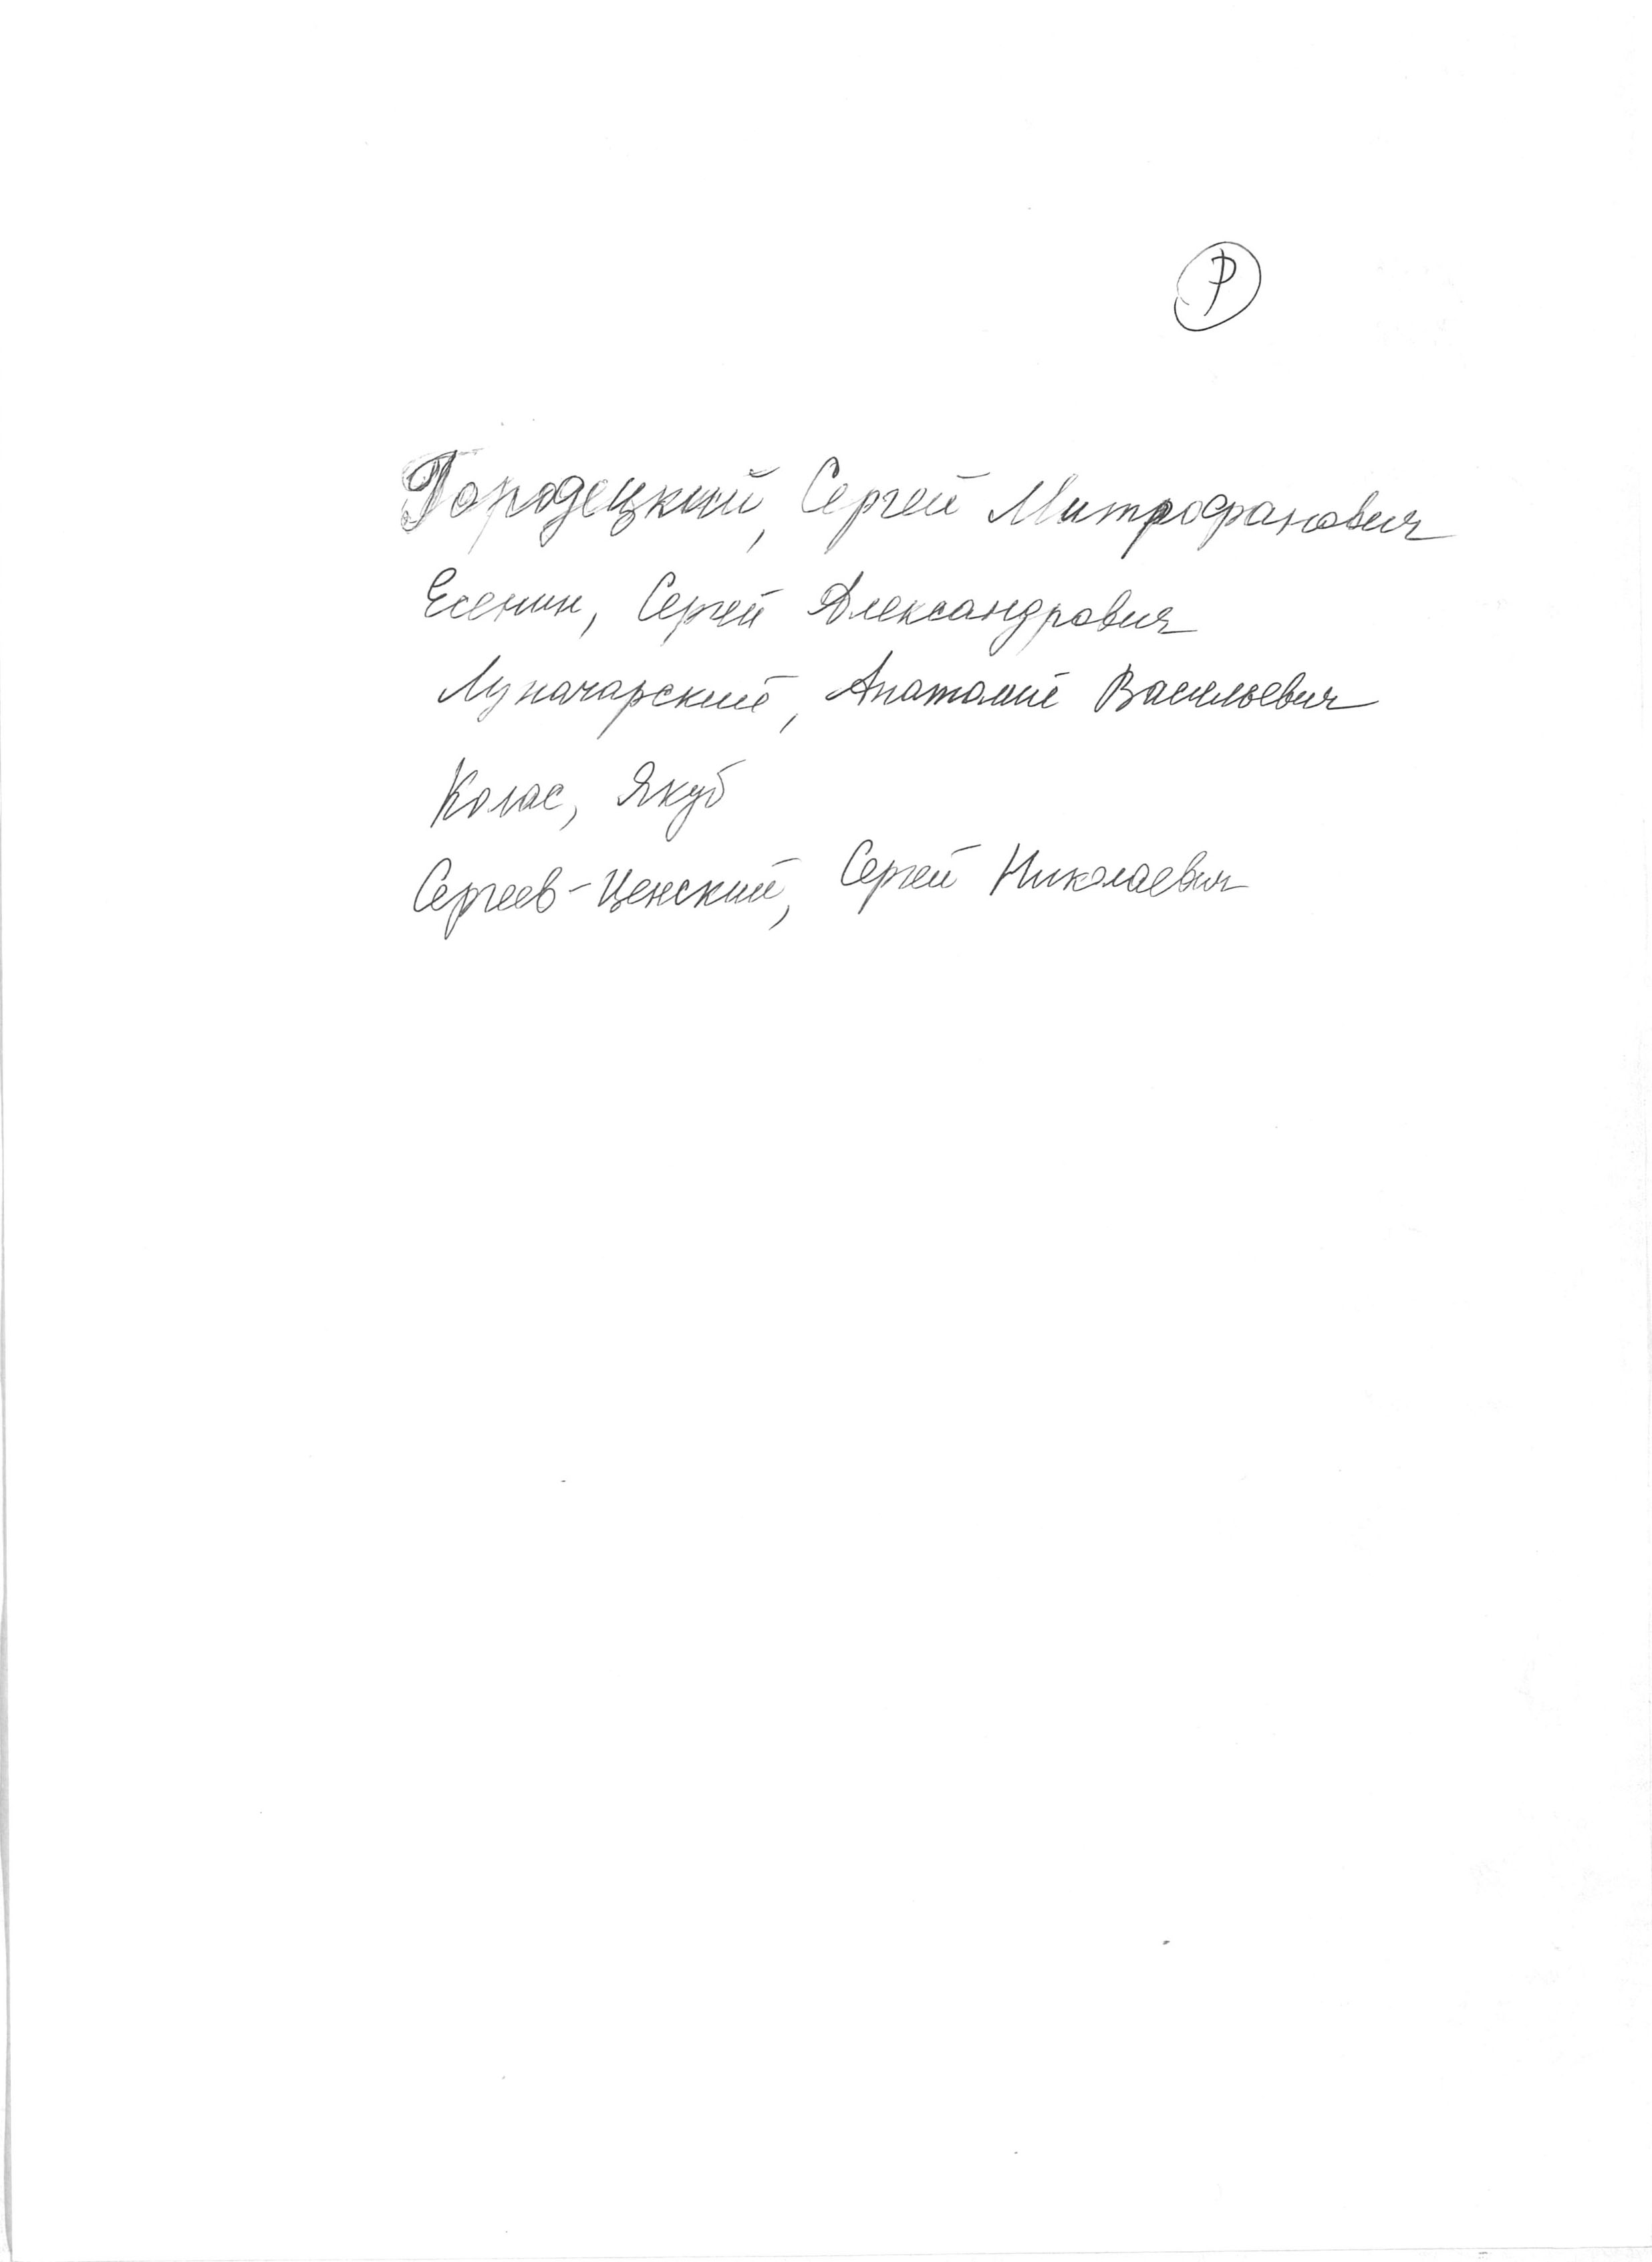 Р
Городецкий, Сергей Митрофанович
Есенин, Сергей Александрович
Луначарский, Анатолий Васильевич
Колас, Якуб
Сергеев-Ценский, Сергей Николаевич